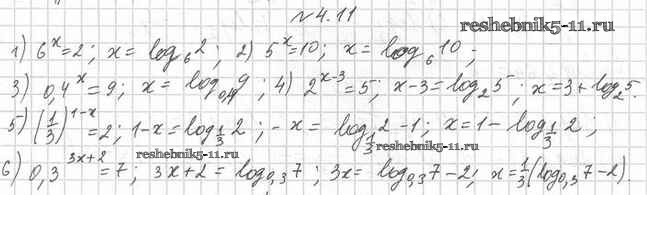 №4.11
reshebnik5-11.ru
1) 6^x=2; x = log_6 2; 2) 5^x=10; x = log_6 10;
3) 0,4^x=9; x = log_0,4 9; 4) 2^(x-3)=5; x-3=log_2 5; x=3+log_2 5.
5) (1/3)^(1-x)=2; 1-x=log_(1/3) 2; -x = log_(1/3) 2 -1; x=1-log_(1/3) 2;
reshebnik5-11.ru reshebnik5-11.ru
6) 0,3^(3x+2)=7; 3x+2=log_0,3 7; 3x=log_0,3 7-2; x=1/3(log_0,3 7-2).